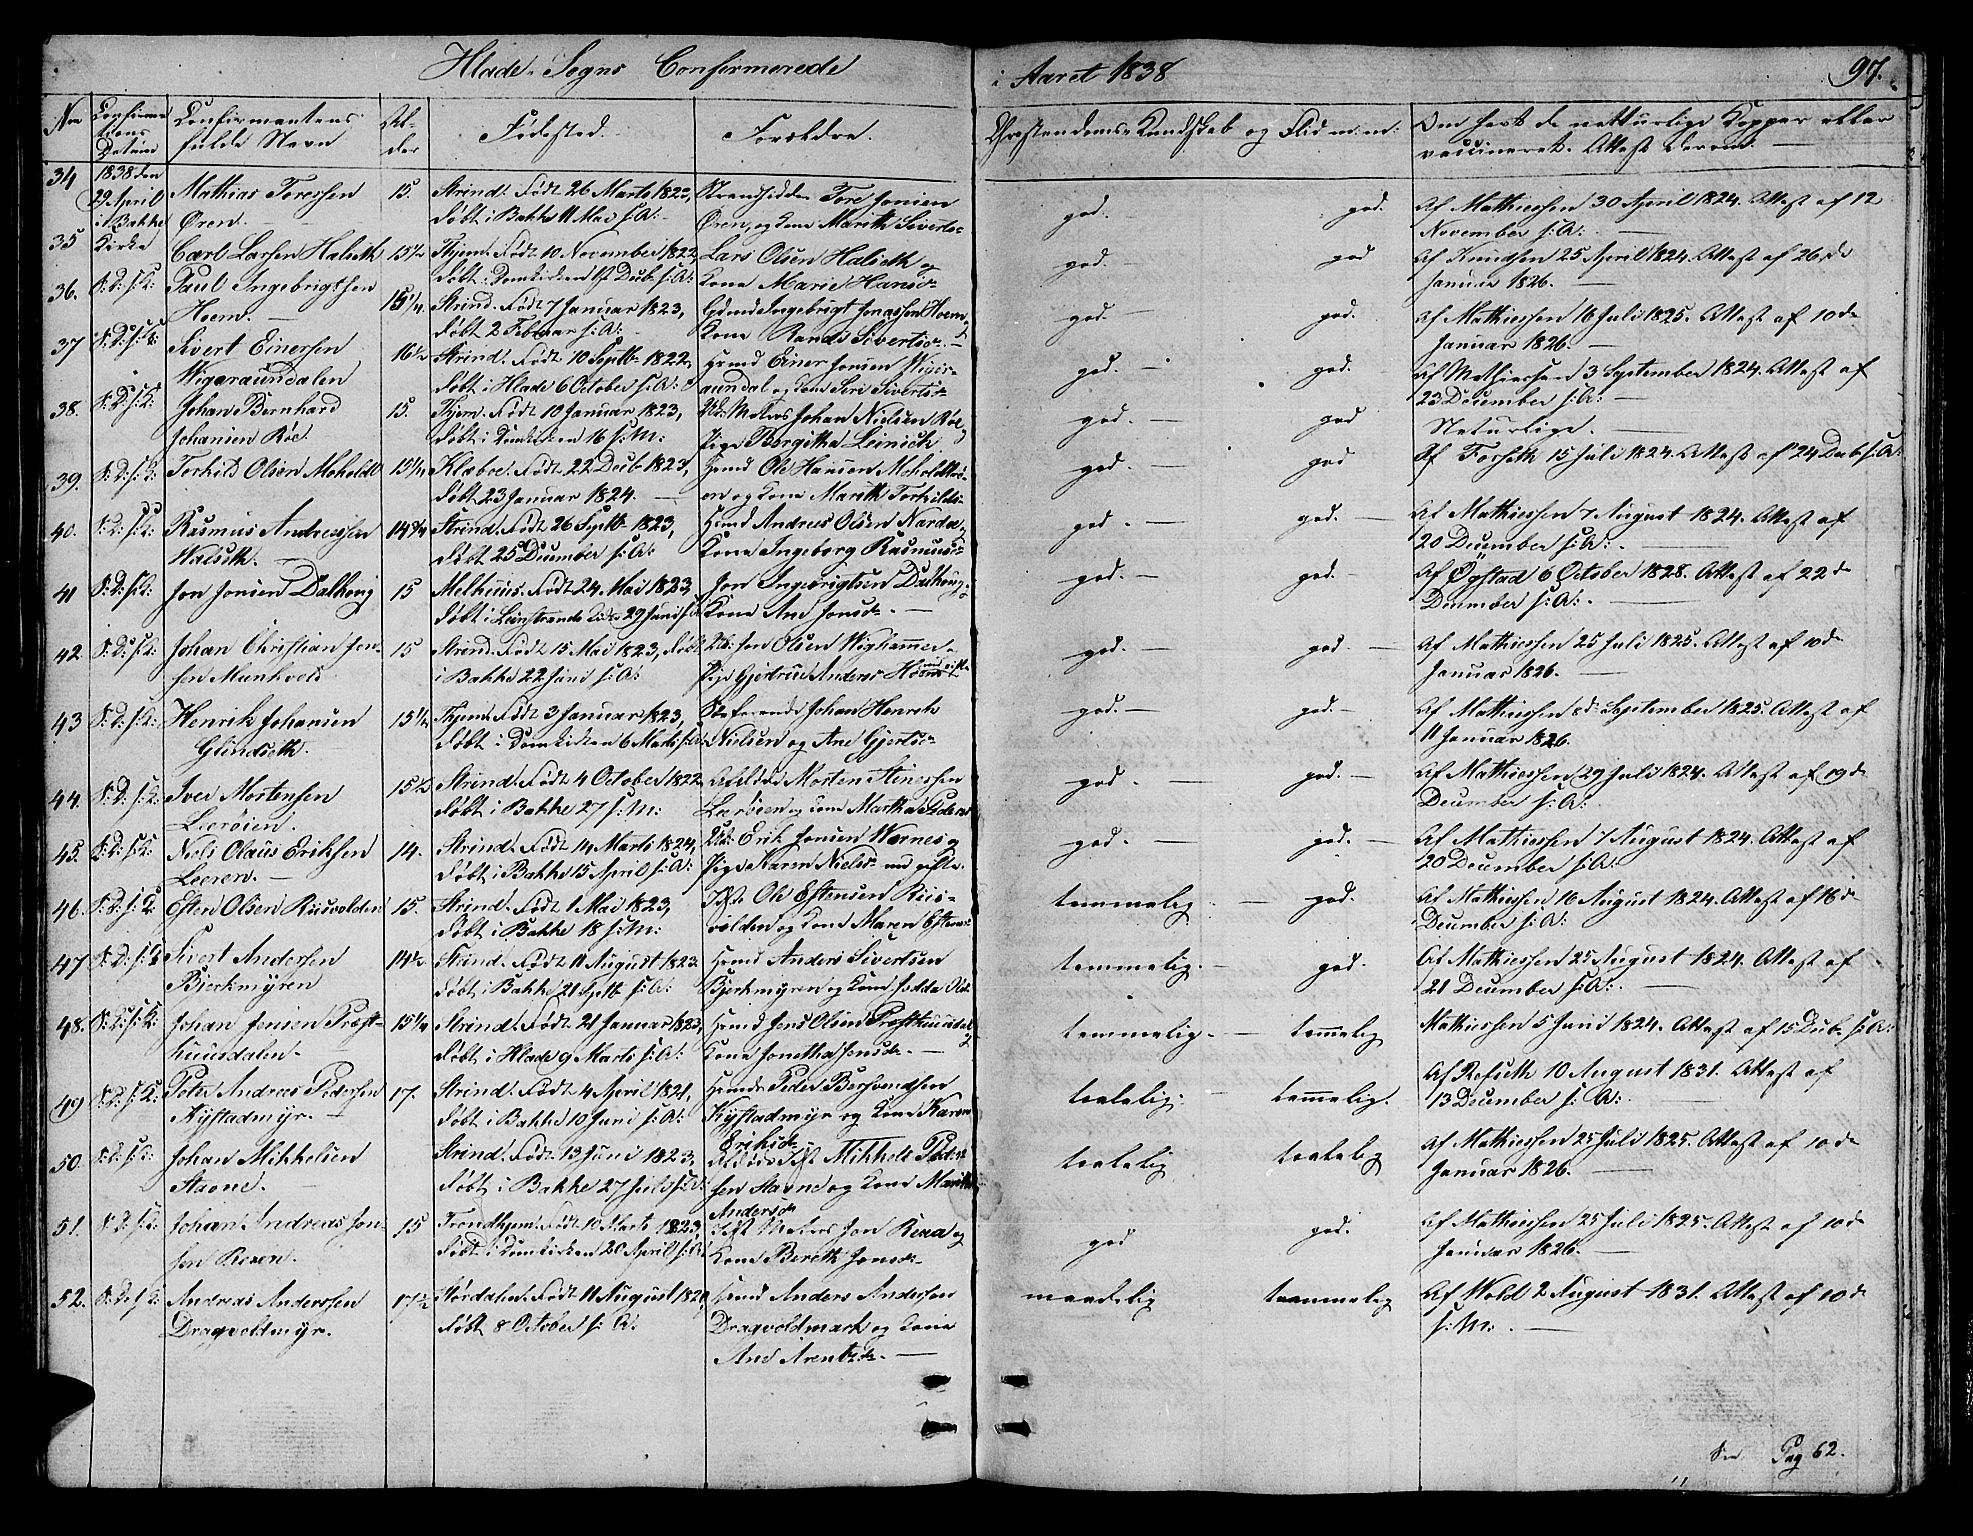 Hlade Sogns Confirmerede i Aaret 1838 97.
Nro Confirmations Datum Confirmantens fulde Navn Alder Fødested. Forældre. Christendoms Kundskab og Flid m: m: Om havt de naturlige Kopper eller vaccineret. Attest derom.
34 1838 den 29 April i Bakke Kirke Mathias Toressen Øren. 15. Strind. Født 26 Marts 1823, døbt i Bakke 11 Mai s: A: Strandsidder Tore Jonsen Øren, og Kone Marith Sivertsd. god. god. Af Mathiessen 30 April 1824. Attest af 12 November s: A:
35 Carl Larsen Halseth 15 1/2 Thjem. Født 10 November 1822, døbt i Domkirken Decb. s: A: Lars Olsen Halseth og Kone Marie Hansd. god. god Af Knudsen 25 April 1824. Attest af 26de Januar 1826.
36. S: D: s: K: Paul Ingebrigtsen Hoem. 15 1/4 Strind. Født 7 Januar 1823, døbt 2 Februar s: A: Gdmd Ingebrigt Jonassen Hoem, Kone Randi Sivertsd. god. god. Af Mathiessen 16 Juli 1825. Attest af 10de Januar 1826.
37 S: D: s: K: Sivert Einersen Wigaraundalen 16 1/2 Strind. Født 10 Septb. 1822, døbt i Hlade 6 October s: A: Huusmd Einer Jonsen aundal og Kone Siri Sivertsd. god. god. Af Mathiessen 3 September 1824. Attest af 23 December s: A:
38. S: D: s: K: Johan Bernhard Johansen Röe. 15. Thjem. Født 10 Januar 1823, døbt i Domkirken 16 s: M: Matros Johan Nielsen Röe, Pige Bergitha Leinich. god. god Naturlige.
39. S: D: s: K: Torkild Olsen Moholdt 15 1/4 Klæboe. Født 22 Decb 1823, døbt 23 Januar 1824. Huusmd Ole Hansen Moholdt og Kone Marith Torkildsd. god. god Af Forseth 15 Juli 1824. Attest af 24 Decb s: A:
40. S: D: s: K: Rasmus Andreassen Walseth. 14 3/4 Strind. Født 26 Septb 1823, døbt 25 December s: A: Huusmd Andreas Olsen Nardoe, Kone Ingeborg Rasmusd. god. god. Af Mathiessen 7 August 1824. Attest af 20 December s: A:
41 S: D: s: K: Jon Jonsen Dalhoug 15 Melhuus. Født 24 Mai 1823, døbt i Leinstrands Kirke 29 Juni s: A: Jon Ingebrigtsen Dalhoug, Kone Ane Jonsd. god. god. Af Øystad 6 October 1828. Attest af 22de December s: A:
42. S: D: s: K: Johan Christian Jensen Munkvold. 15 Strind. Født 15 Mai 1823, døbt i Bakke 22 Juni s: A: Jon Olsen Wighammer, Pige Gjertrue Andersd Hoem god. god. Af Mathiessen 25 Juli 1825. Attest af 10de Januar 1826.
43 S: D: s: K: Henrik Johansen Glindseth. 15 1/4 Thjem. Født 3 Januar 1823, døbt i Domkirken 6 Marts s: A: Søefarende Johan Henrik Nielsen og Ane Gjertsd. god. god. Af Mathiessen 8de September 1825. Attest af 11 Januar 1826.
44. S: D: s: K: Iver Mortensen Lerøien. 15 1/2 Strind. Født 4 October 1822 døbt i Bakke 27 s: M: Afdøde Morten Stinessen Lerøien og Kone Martha Pedersd god. god. Af Mathiessen 29 Juli 1824. Attest af 19de December s: A:
45. S: D: s: K: Niels Olaus Eriksen Leeren. 14. Strind. Født 14 Marts 1824, døbt i Bakke 15 April s: A: Erik Jonsen Warnes og Pige Karen Nielsd. ved gifte. god. god. Af Mathiessen 7 August 1824. Attest af 20 December s: A:
46. S: D: s: K: Esten Olsen Riisvolden 15. Strind. Født 1 Mai 1823, døbt i Bakke 18 s: M: Ole Estensen Riisvolden og Kone Maren Estensd. temmelig. god. Af Mathiessen 16 August 1824. Attest af 16de December s: A:
47 S: D: s: K Sivert Andersen Bjerkmyren 14 1/2 Strind. Født 11 August 1823. døbt i Bakke 21 Septb s: A: Huusmd Anders Sivertsen Bjerkmyren og Kone temmelig. god. Af Mathiessen 25 August 1824. Attest af 21 December s: A:
48. S: D: s: K: Johan Jensen Præsthuusdalen. 15 1/4 Strind. Født 21 Januar 1823, døbt i Hlade 9 Marts s: A: Huusmd Jens Olsen Præsthuusdal og Kone Jonetha Jonsd. temmelig. temmelig Mathiessen 5 Juni 1824. Attest af 15 Decb. s: A:
49 S: D: s: K: Peter Andreas Pedersen Kystadmyr. 17. Strind. Født 4 April 1821, døbt i Bakke 10 Juni s: A: Huusmd Peder Bersvendsen Kystadmyr og Kone Karen Eriksd. taalelig. temmelig. Af Refseth 10 August 1831. Attest af 13 December s: A:
50. S: D: s: K: Johan Mikkelsen Stavne. Strind. Født 13 Juni 1823, døbt i Bakke 27 Juli s: A: Mikkel Pedersen Stavne og Kone Marith Andersd. taalelig taalelig Af Mathiessen 25 Juli 1825. Attest af 10de Januar 1826.
51. S: D: s: K: Johan Andreas Jonsen Rexen. 15 Trondhjem. Født 10 Marts 1823, døbt i Domkirken 20 April s: A: Matros Jon Rexa og Kone Bereth Jonsd. god god. Af Mathiessen 25 Juli 1825. Attest af 10de Januar 1826.
52. S: D: s: K: Andreas Anderssen Dragvoldmyr. 17 1/2 Størdalen. Født 11 August 1820, døbt 8 October s: A: Huusmd Anders Andersen Dragvoldmark og Kone Ane Arentzd. maadelig temmelig Af Wold 2 August 1831. Attest af 10de s: M:
See Pag 62.